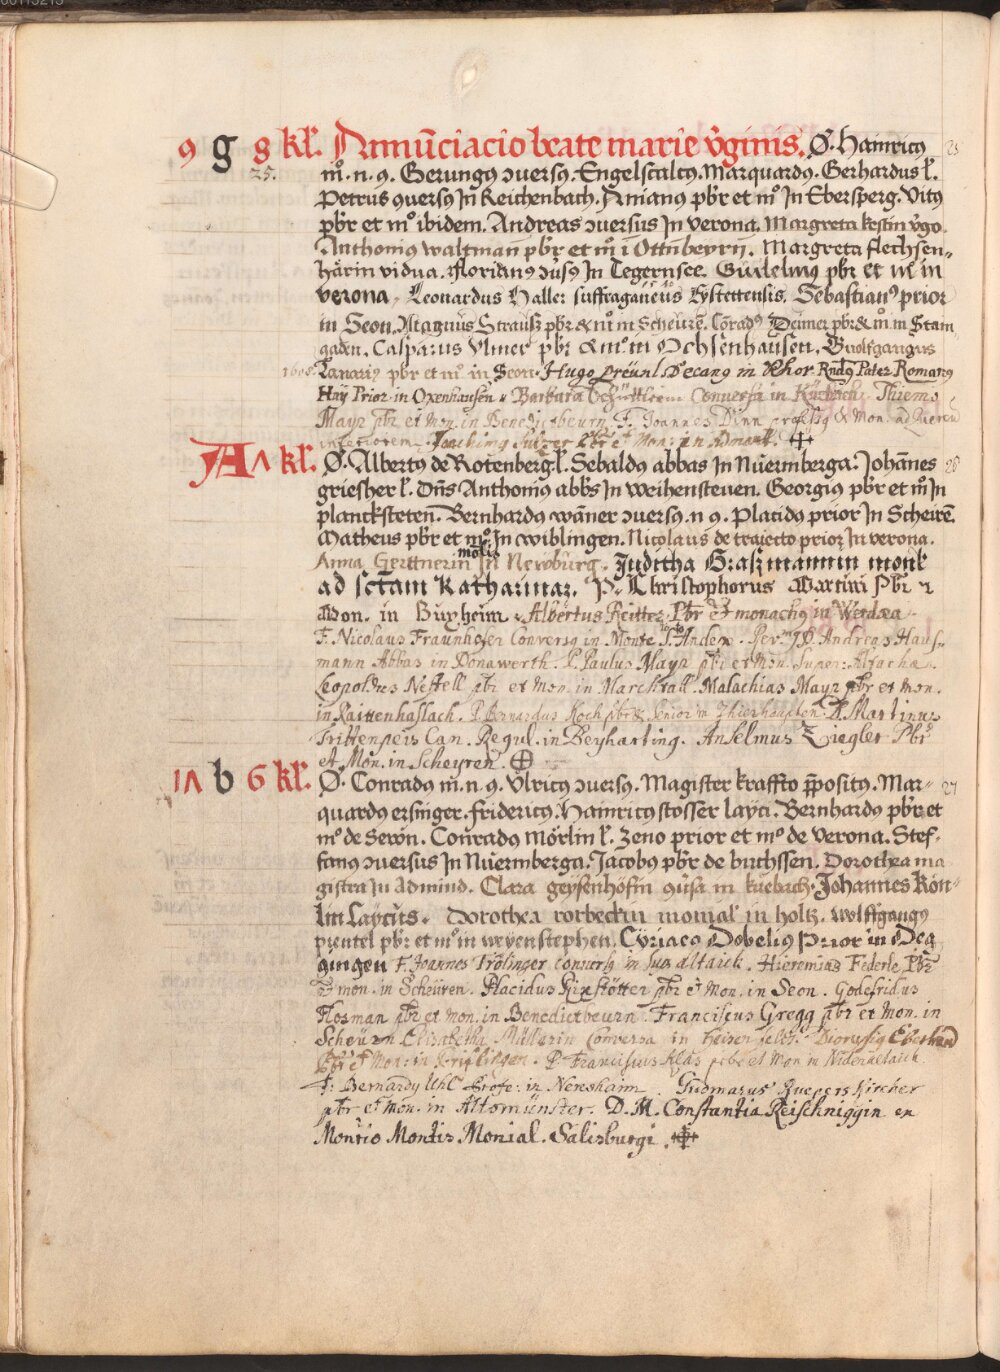 00113213
9 g 8 kl̄. Annūciacio beate marie v̄ginis. Ø. Hainricꝰ 25
25. m̊. n. 9. Gerungꝰ ↄuersꝰ. Engelscalcꝰ. Marquardꝰ. Gerhardus l̄.
Petrus ↄuersꝰ In Reichenbach. Amanꝰ pb̄r et m̊ In Ebersperg. Vitꝰ
pb̄r et m̊ ibidem. Andreas ↄuersus In verona. Margreta kestin v̄go.
Anthoniꝰ waltman pb̄r et m̊ ī Ottnbeyrn. Margreta flechsen„
härin vidua. Florianꝰ ↄusꝰ In Tegernsee. Guilelmꝰ pbr et m̊ in
verona, Leonardus Haller suffraganeus Eystettensis. Sebastianꝰ prior
in Seon. Magnus Strausz pbr & m̊ in Scheurē. Cōradꝰ Deimer pbr & m̊ in Stam
gaden. Casparus Vlmer pbr & m̊ in Ochsenhausen. Guolfgangus
1608. Lanariꝰ pbr et m̊ in Seon. Hugo Preunl Decanꝰ in Rhor. Rndꝰ Pater Romanꝰ
Haÿ Prior in Oxenhausen. Barbara Conuersa in Küebach. Thiemo
Mayr pbr et Mon. in Benedictbeurn. F. Joannes Dinn professꝰ & Mon. ad
inferiorem. Joachimꝰ pbr et Mon: in Admont.
A ʌ kl̄. Ø. Albertꝰ de Rotenberg. l̄. Sebaldꝰ abbas In Nüermberga. Johānes 26
griesher l̄. Dn̄s Anthoniꝰ abb̄s In weihensteuen. Georgiꝰ pb̄r et m̊ In
planckstetē. Bernhardꝰ wāner ↄuersꝰ. n 9. Placidꝰ prior In Scheirē.
Matheus pb̄r et m̊ In wiblingen. Nicolaus de traiecto prior In verona.
Anna Gerttnerin mōlis In Newburg. Juditha Graszmannin monl̄
ad sctam Katharinaz. P. Christophorus Martini Pbr &
Mon. in Buxheim. Albertus Reitter Pbr & monachꝰ in Werdea
F. Nicolaus Fraunhofer Conversꝰ in Monte Scto Andex. Rev.mꝰ D. Andreas Haus„
mann Abbas in Donawerth. P. Paulus Mayr pbr et Mon. Super: Altachae
Leopoldus Nestell pbr et Mon. in Marchtall. Malachias Mayr pbr et Mon.
in Raittenhaslach. P. Bernardus Koch pbr & Senior in Thierhaupten. D. Martinus
Trittenpreis Can. Regul. in Beyharting. Anselmus Ziegler Pbr
et Mon. in Scheyren.
1ʌ b 6 kl̄. Ø. Conradꝰ m̄. n. 9. Vlricꝰ ↄuersꝰ. Magister kraffto p̄positꝰ. Mar„ 27
quardꝰ ersinger. fridericꝰ. Hainricꝰ stosser layci. Bernhardꝰ pb̄r et
m̊ de Sewn. Conradꝰ Mörlin l̄. Zeno prior et m̊ de Verona. Stef„
fanꝰ ↄuersus In Nüermberga. Jacobꝰ pb̄r de buchssen. Dorothea ma
gistra In admund. Clara geysenhöfin ↄusa in küebach. Johannes Kön„
lin Laycus. Dorothea rorbeckin monial̄ in holtz. Wolffgangꝰ
pientel pbr et m̊ in weyenstephen. Cÿriacꝰ Dobeliꝰ Prior in Deg
gingen F. Joannes Trölinger conversꝰ in sua altaich. Hieremias Federle Pbr
& mon. in Scheüren. Placidus Hixstötter pbr & Mon. in Seon. Godefridus
Flosman pbr et Mon. in Benedictbeurn. Franciscus Gregg pbr et Mon. in
Scheürn Elisabetha Müllerin Conversa in Dionysiꝰ Eberhard
Pbr & Mon: in P. Franciscus pbr et Mon in Nideraltaich.
F: Bernardꝰ Uhl Profe: in Neresheim. Thomasus Ruepers Kircher
pbr & Mon. in Altomünster. D. M. Constantia Reischniggin in
Montio Montis Monial. Salisburgi.